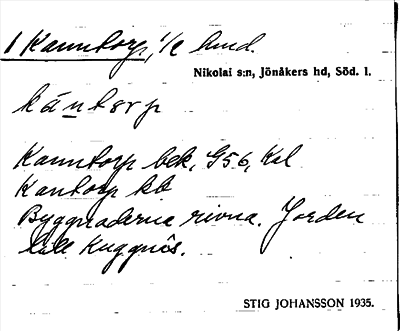 1 Kanntorp, 1/2 hmd.
Nikolai s:n, Jönåkers hd, Söd. l.
kántorp
Kanntorp bek, G56, Ksl
Kantorp kb
Byggnaderna rivna. Jorden
till Kuggnäs.
STIG JOHANSSON 1935.